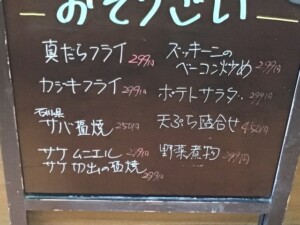 おそうざい
真だらフライ 299円
カジキフライ 299円
石川県
サバ塩焼 250円
サケムニエル 299円
サケカ出の塩焼 299円
ズッキーニの
ベーコン炒め 299円
ポテトサラダ 299円
天ぷら詰合せ 450円
野菜煮物 299円